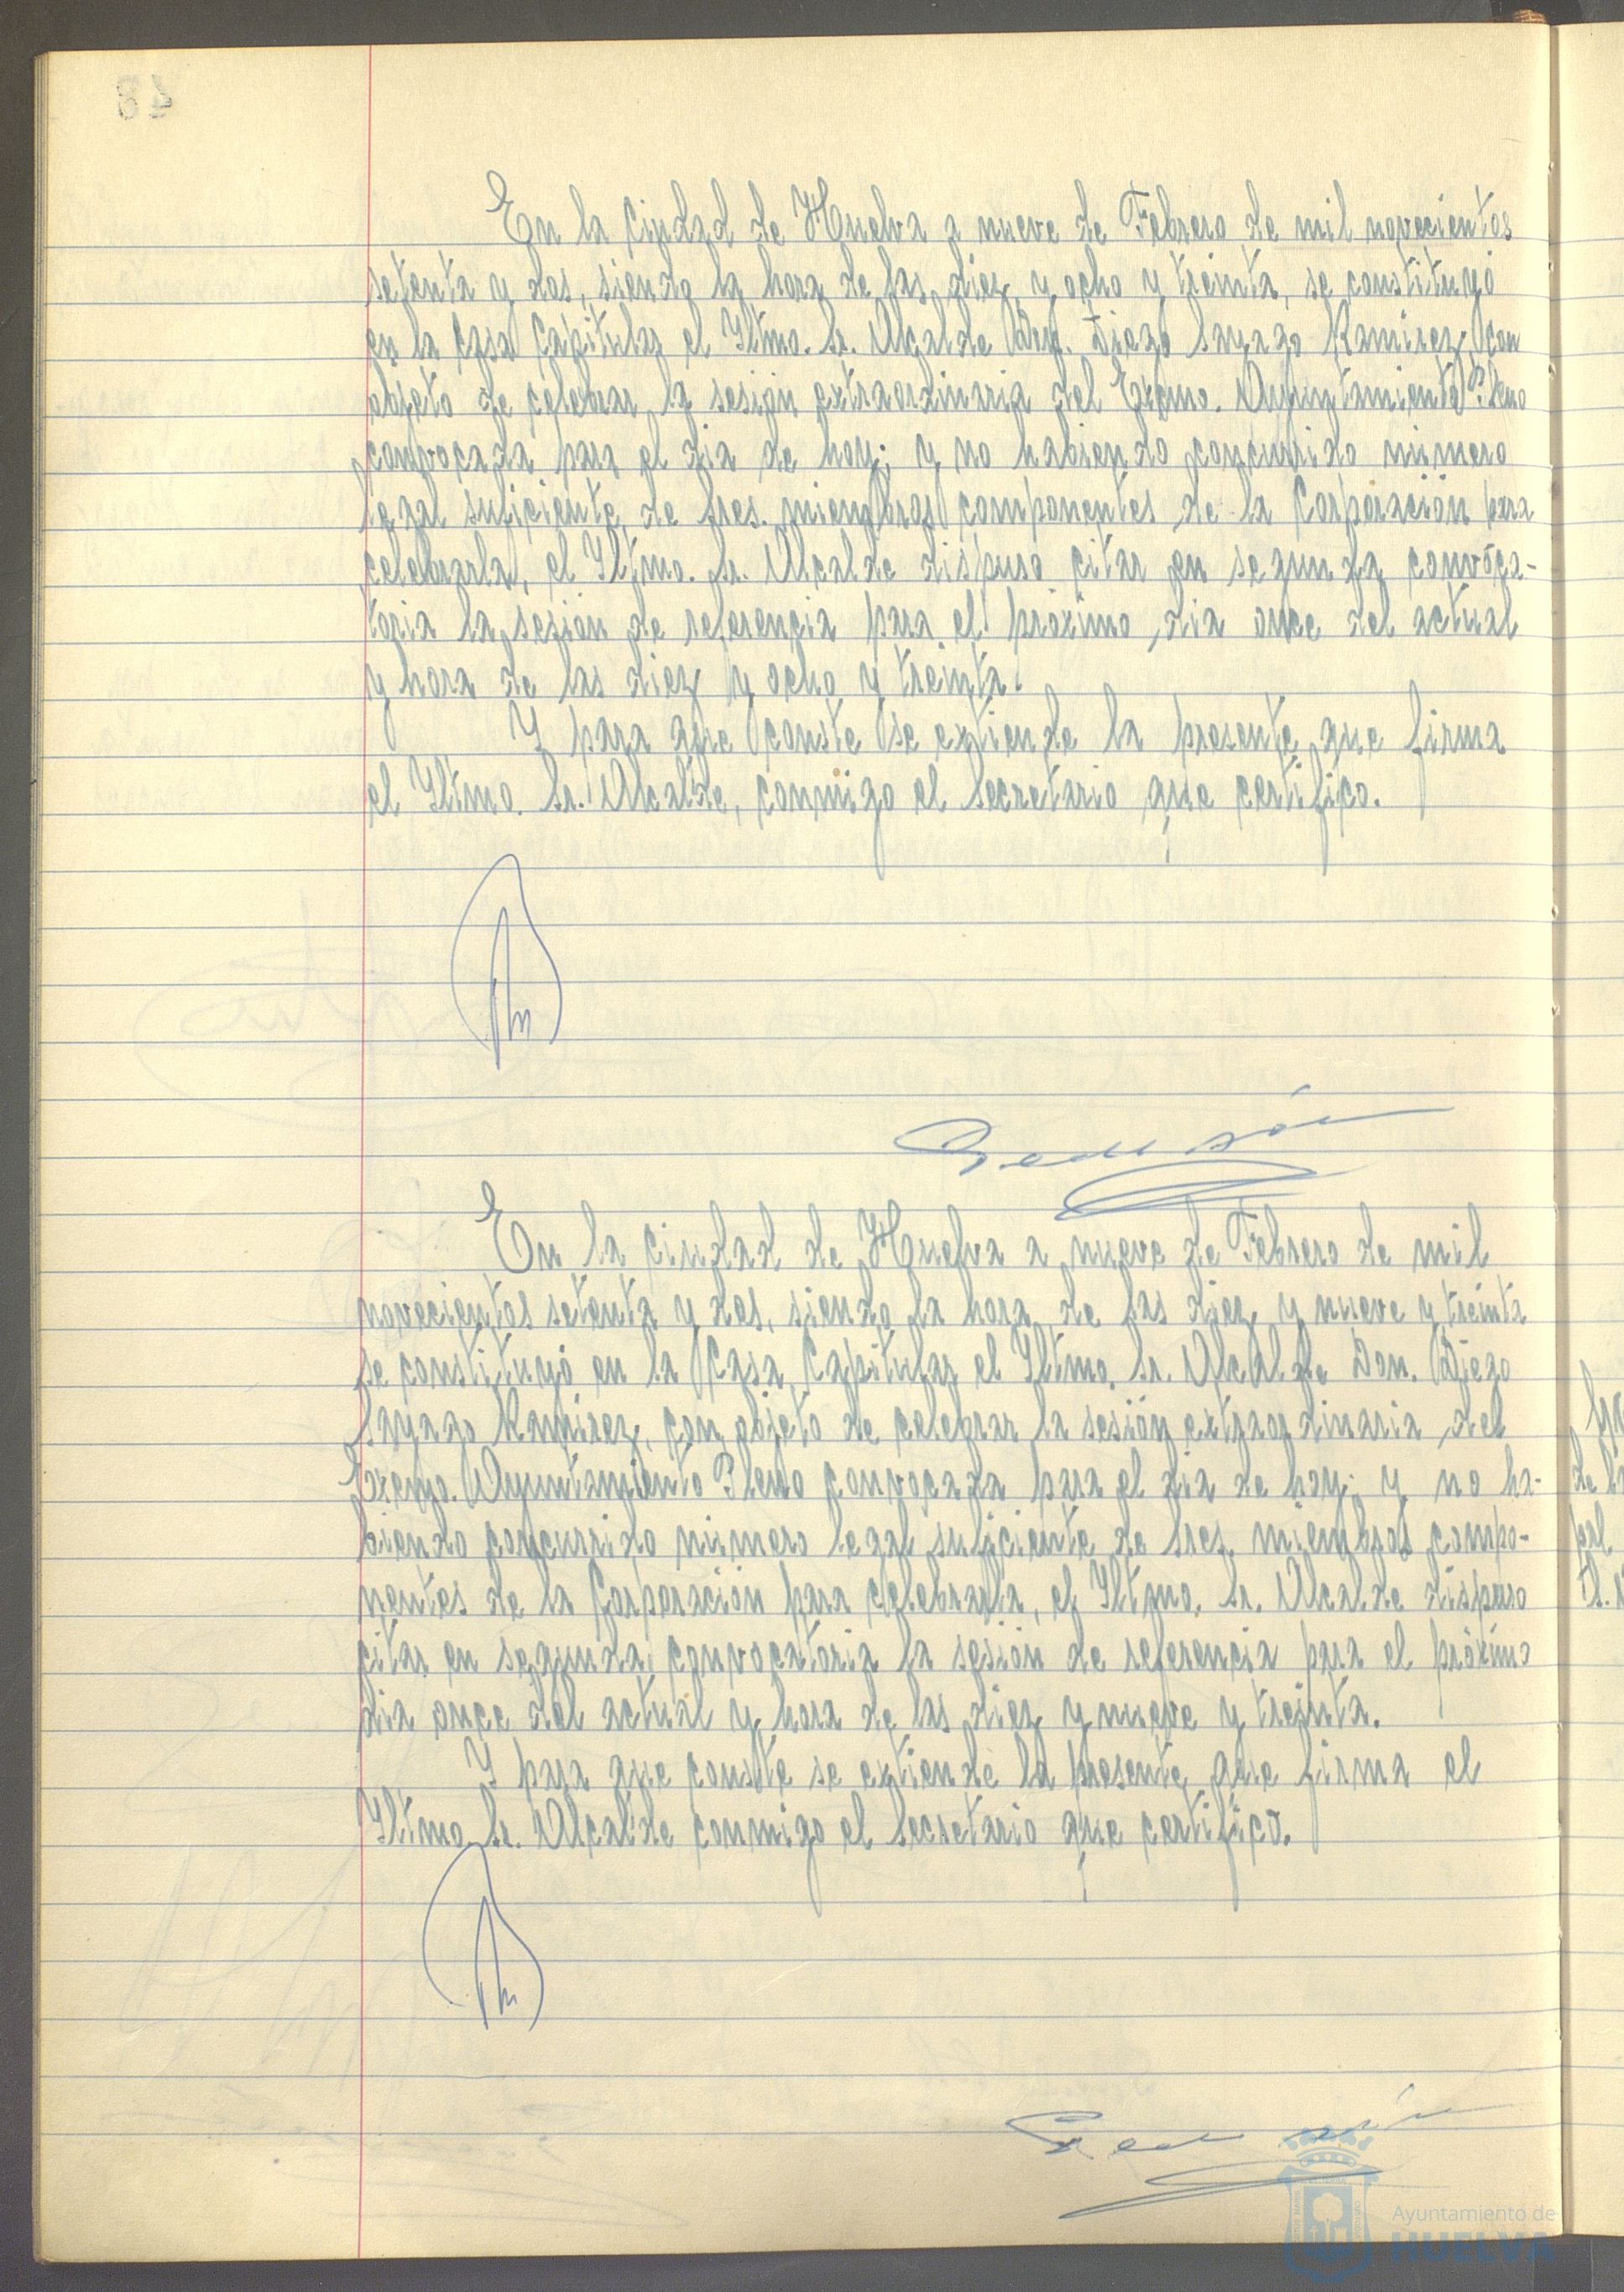 48
En la Ciudad de Huelva a nueve de Febrero de mil novecientos
setenta y dos, siendo la hora de las diez y ocho y treinta, se constituyó
en la Casa Capitular el Iltmo. Sr. Alcalde Don. Diego Sayago Ramirez, con
objeto de celebrar la sesión extraordinaria del Excmo. Ayuntamiento Pleno
convocada para el dia de hoy; y no habiendo concurrido número
legal suficiente de Sres. miembros componentes de la Corporación para
celebrarla, el Iltmo. Sr. Alcalde dispuso citar en segunda convoca-
toria la sesión de referencia para el próximo dia once del actual
y hora de las diez y ocho y treinta.
Y para que conste se extiende la presente que firma
el Iltmo. Sr. Alcalde, conmigo el Secretario que certifico.
En la ciudad de Huelva a nueve de Febrero de mil
novecientos setenta y dos, siendo la hora de las diez y nueve y treinta
se constituyó en la Casa Capitular el Iltmo. Sr. Alcalde Don. Diego
Sayago Ramirez, con objeto de celebrar la sesión extraordinaria del
Excmo. Ayuntamiento Pleno convocada para el dia de hoy; y no ha-
biendo concurrido número legal suficiente de Sres. miembros compo-
nentes de la Corporación para celebrarla, el Iltmo. Sr. Alcalde dispuso
citar en segunda convocatoria la sesión de referencia para el próximo
dia once del actual y hora de las diez y nueve y treinta.
Y para que conste se extiende la presente que firma el
Iltmo. Sr. Alcalde conmigo el Secretario que certifico.
Ayuntamiento de
HUELVA